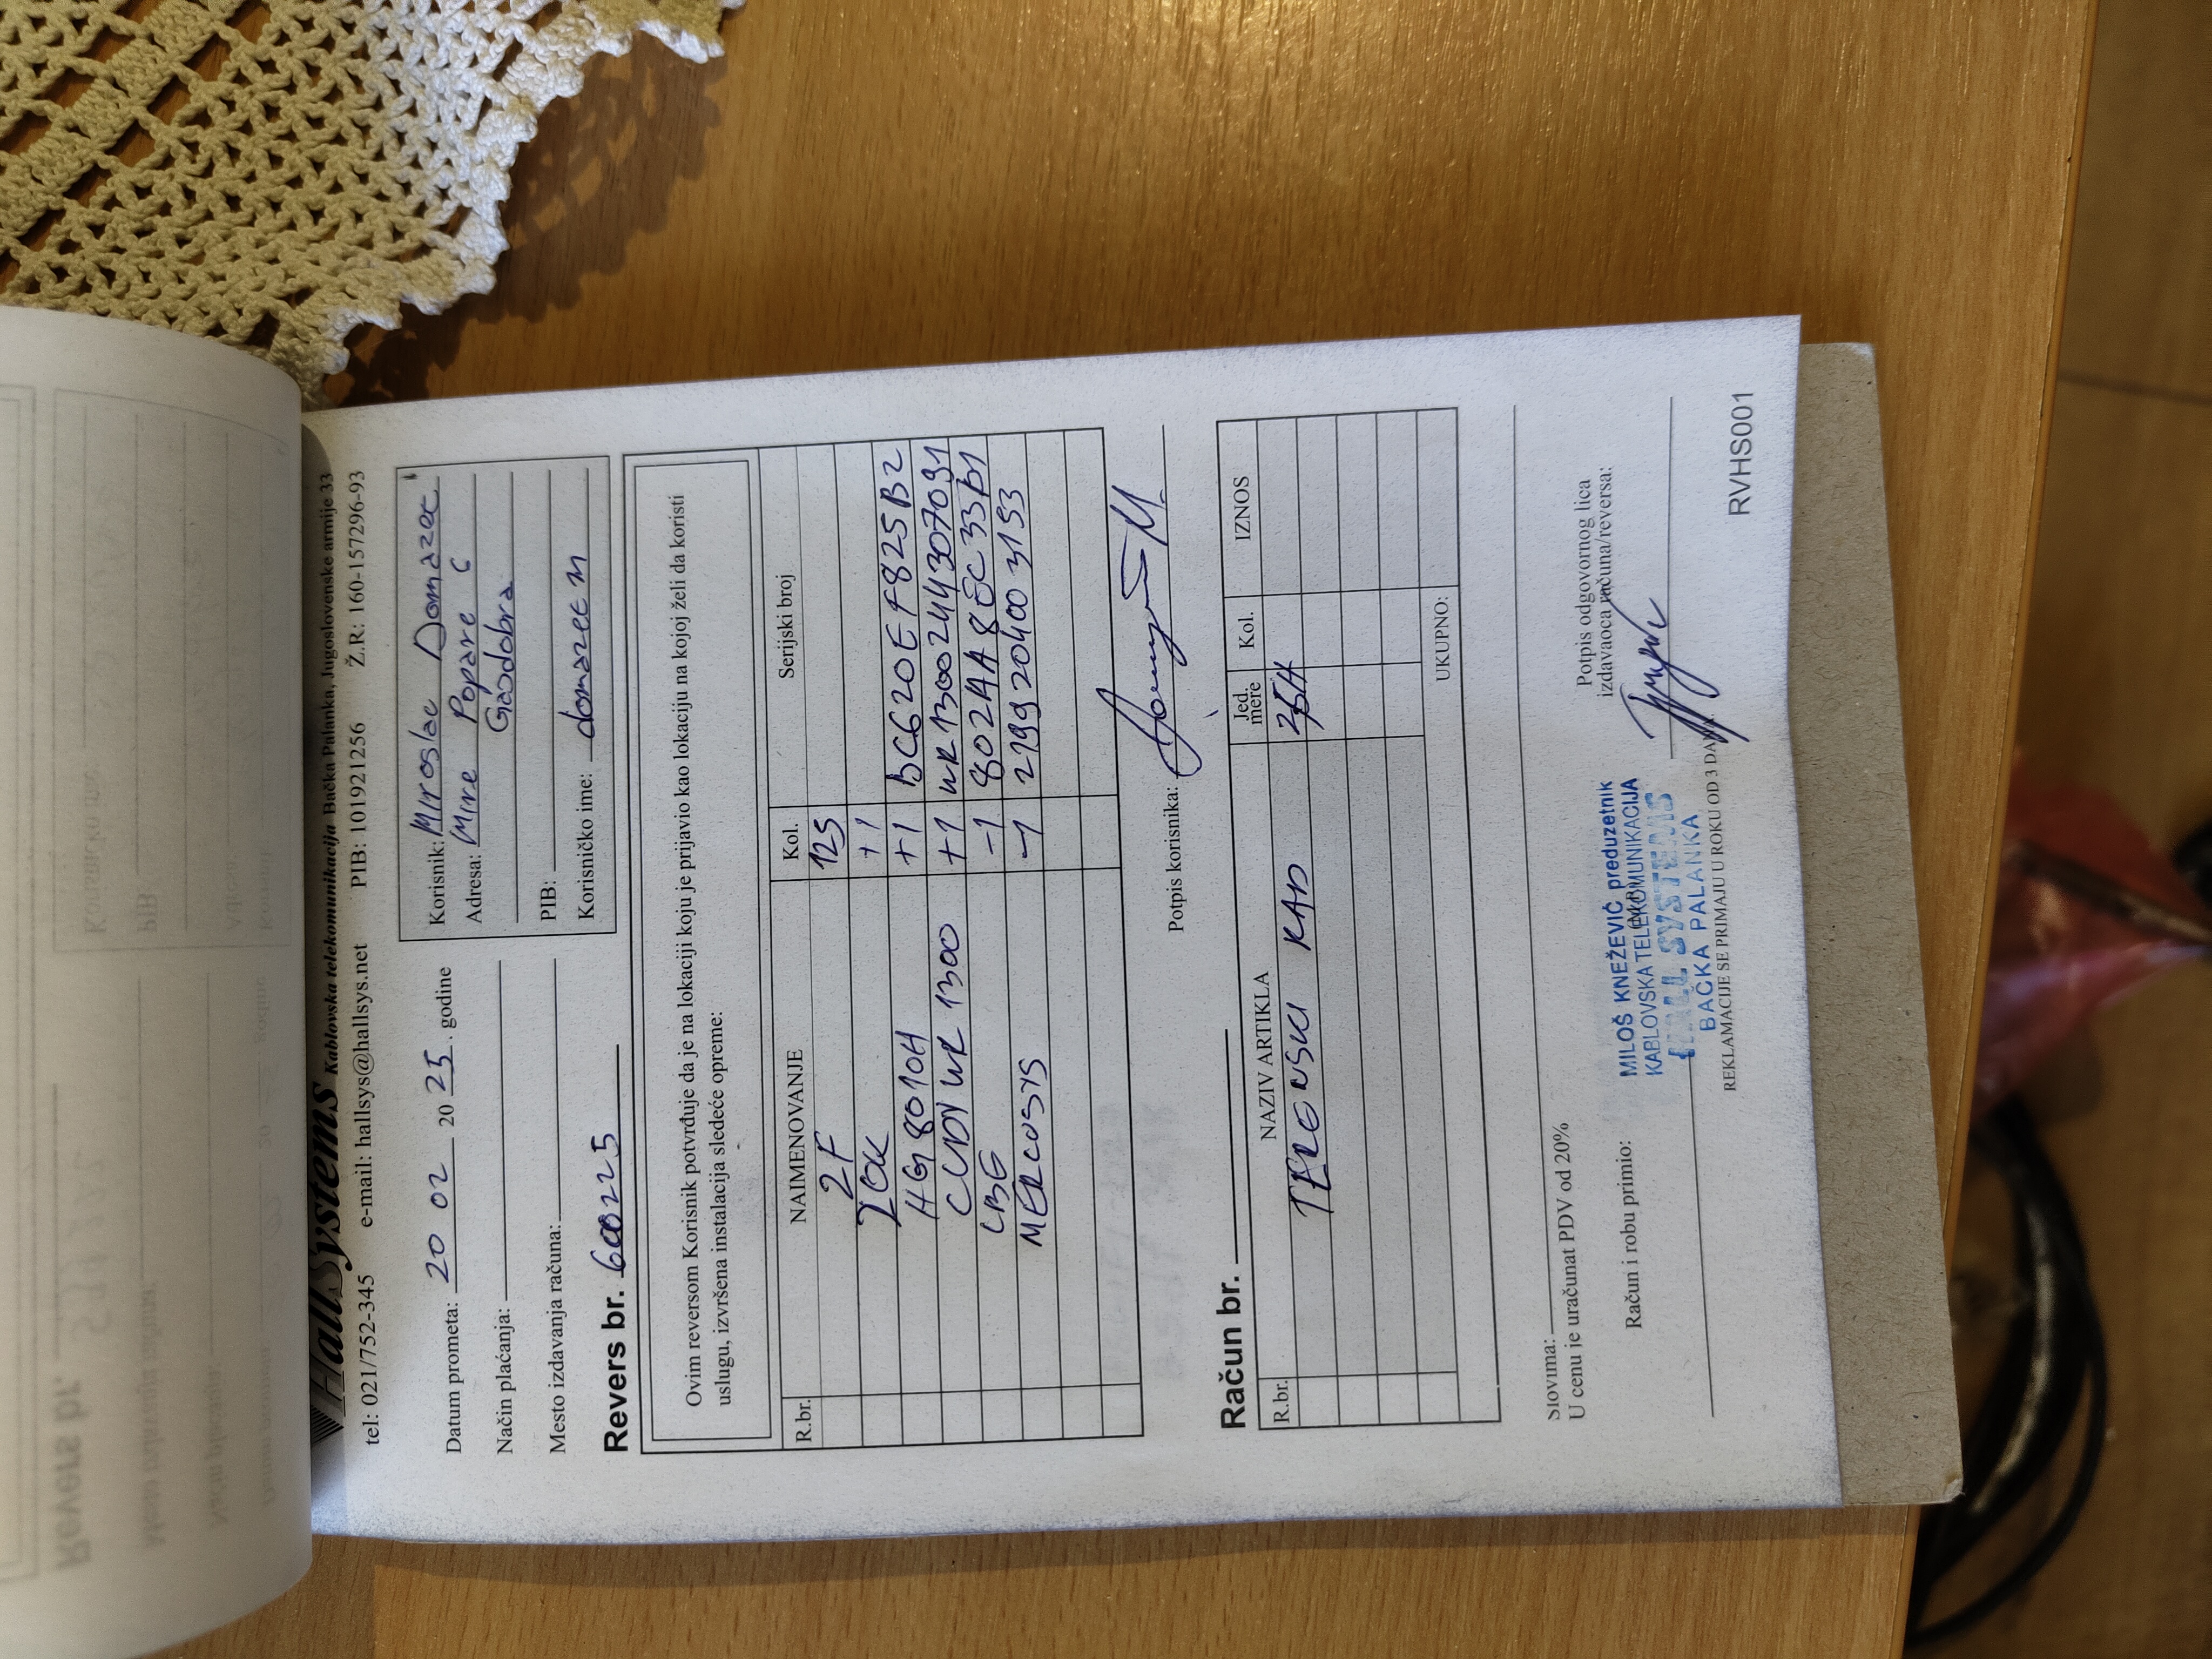 HallSystems Kablovska telekomunikacija Bačka Palanka, Jugoslovenske armije 33
tel: 021/752-345 e-mail: hallsys@hallsys.net PIB: 101921256 Ž.R: 160-157296-93
Datum prometa: 20 02 2025. godine
Način plaćanja:
Mesto izdavanja računa:
Korisnik: Miroslav Domazec
Adresa: Mire Popare 6
Gaodobra
PIB:
Korisničko ime: domazec m
Revers br. 600225
Ovim reversom Korisnik potvrđuje da je na lokaciji koju je prijavio kao lokaciju na kojoj želi da koristi
uslugu, izvršena instalacija sledeće opreme:
R.br. NAIMENOVANJE Kol. Serijski broj
2F 125
ZOK +1
HG8010H +1 DC620EF825B2
CUDY WR 1300 +1 WR1300244307091
LBE -1 802AA8EC33D1
MERCUSYS -1 2199204003153
Potpis korisnika:
Račun br.
R.br. NAZIV ARTIKLA Jed. mere Kol. IZNOS
TERENSKI RAD
UKUPNO:
Slovima:
U cenu je uračunat PDV od 20%
Račun i robu primio:
Potpis odgovornog lica
izdavaoca računa/reversa:
MILOŠ KNEŽEVIĆ preduzetnik
KABLOVSKA TELEKOMUNIKACIJA
HALL SYSTEMS
BAČKA PALANKA
REKLAMACIJE SE PRIMAJU U ROKU OD 3 DANA
RVHS001